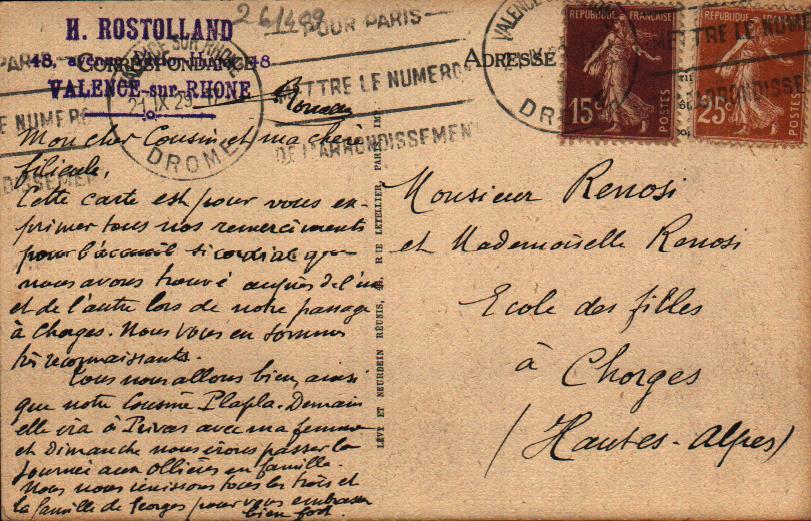 261499
H. ROSTOLLAND
48, avenue Victor-Hugo, 48
VALENCE-sur-RHONE
CORRESPONDANCE
ADRESSE
VALENCE-SUR-RHONE
21 IX 29
DROME
POUR PARIS
METTRE LE NUMERO
DE L'ARRONDISSEMENT
REPUBLIQUE FRANÇAISE
15c
POSTES
REPUBLIQUE FRANÇAISE
25c
POSTES
Mon cher Cousin et ma chère
filleule,
Cette carte est pour vous ex-
primer tous nos remerciments
pour l'accueil si cordial que
nous avons trouvé auprès de l'un
et de l'autre lors de notre passage
à Chorges. Nous vous en sommes
très reconnaissants.
Tous nous allons bien, ainsi
que notre Cousine Plapla. Demain
elle ira à Privas avec ma femme
et dimanche nous irons passer la
journée aux Ollières en famille.
Nous nous réunissons tous les trois et
la famille de Georges pour vous embrasser
bien fort.
LÉVY ET NEURDEIN RÉUNIS, RUE LETELLIER, PARIS. IMP.
Monsieur Renosi
et Mademoiselle Renosi
Ecole des filles
à Chorges
(Hautes-Alpes)